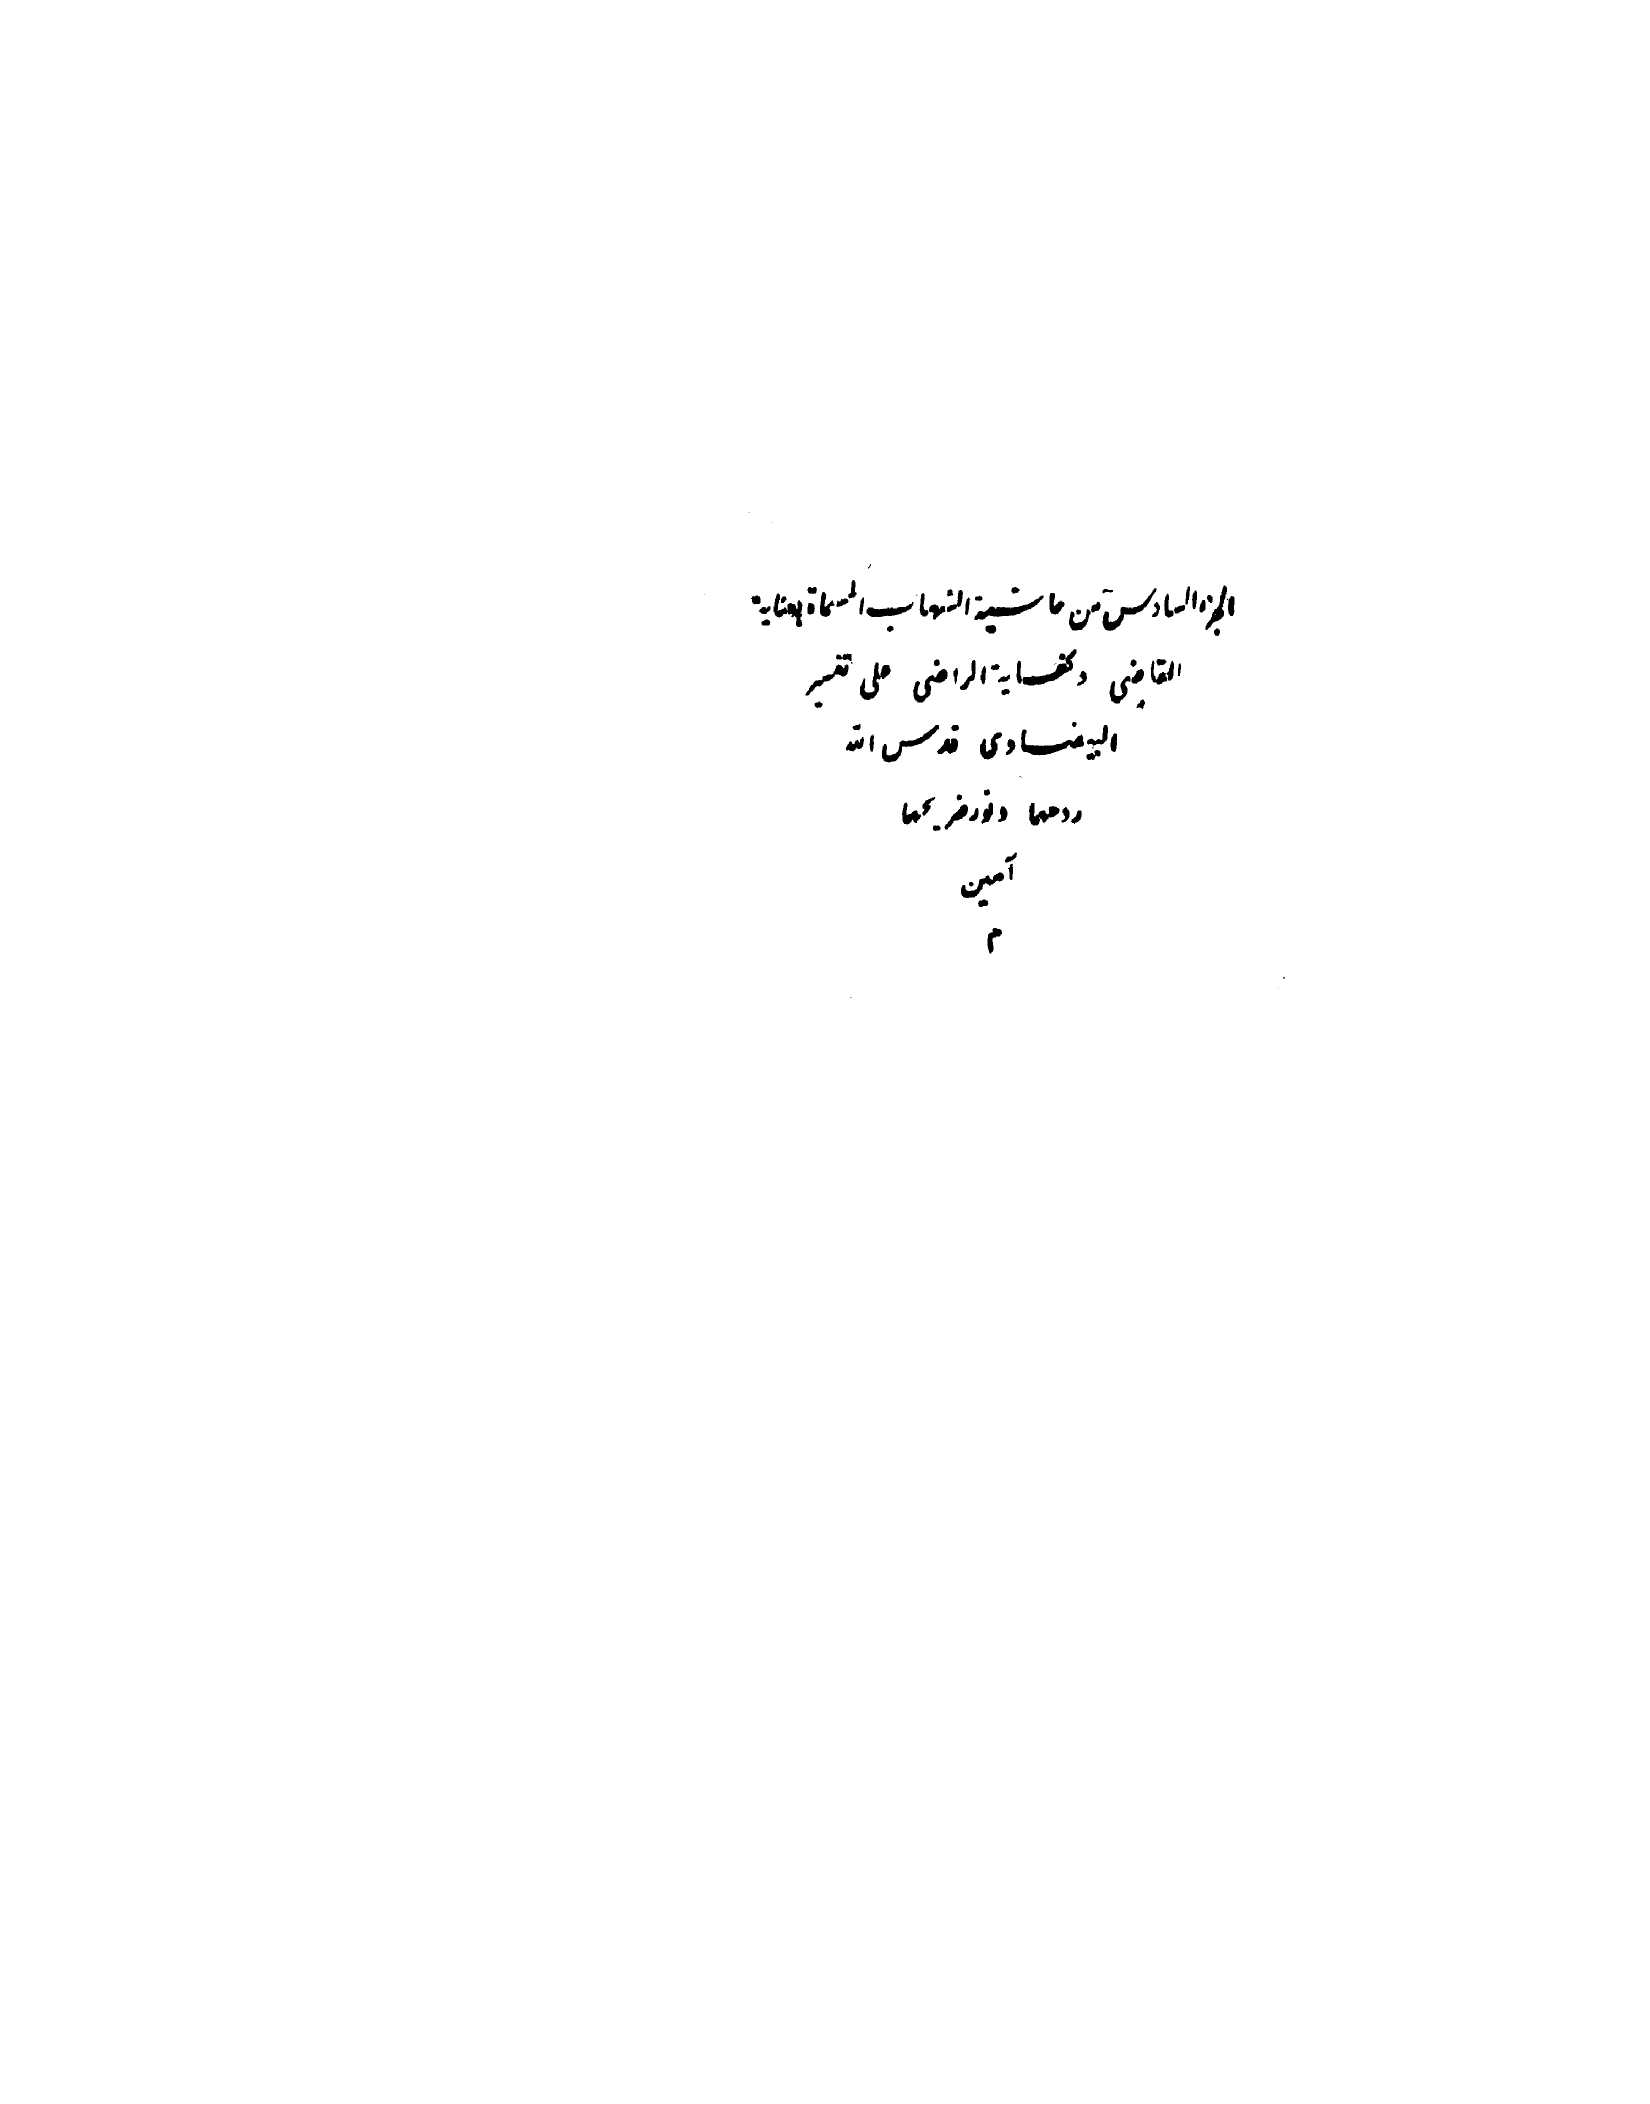 الجزء السادس من حاشية الشهاب المسماة بعناية
القاضى وكفاية الراضى على تفسير
البيضاوى قدس الله
روحهما ونور ضريحهما
آمين
م